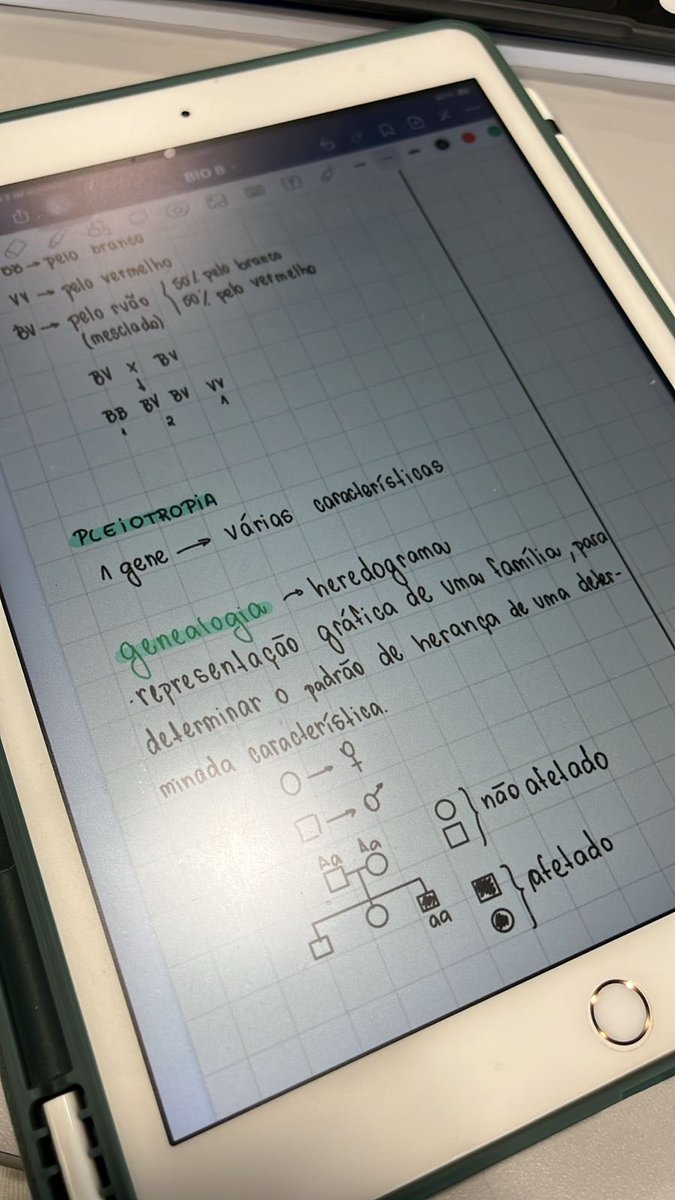 BIO B
BB → pelo branco
VV → pelo vermelho
BV → pelo ruão } 50% pelo branco
(mesclado) } 50% pelo vermelho
BV x BV
↓
BB BV BV VV
1 2 1
PLEIOTROPIA
1 gene → várias características
genealogia → heredograma
. representação gráfica de uma família, para
determinar o padrão de herança de uma deter-
minada característica.
○ → ♀
□ → ♂
Aa Aa
aa
} não afetado
} afetado